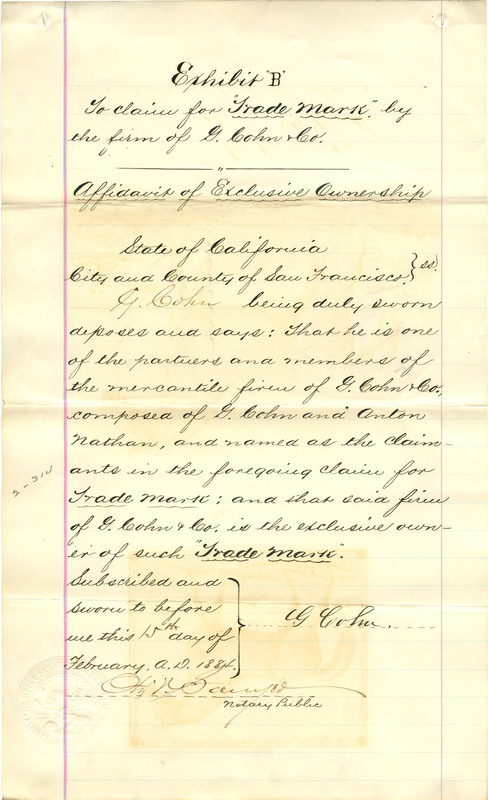 Exhibit "B"
To claim for "Trade Mark", by
the firm of G. Cohn & Co.
"
Affidavit of Exclusive Ownership
State of California
City and County of San Francisco. } ss.
G. Cohn being duly sworn
deposes and says: That he is one
of the partners and members of
the mercantile firm of G. Cohn & Co.,
composed of G. Cohn and Anton
Nathan, and named as the claim-
ants in the foregoing claim for
Trade Mark; and that said firm
of G. Cohn & Co. is the exclusive own-
er of such "Trade Mark".
Subscribed and
sworn to before
me this 15th day of
February, A.D. 1884.
G Cohn.
Notary Public